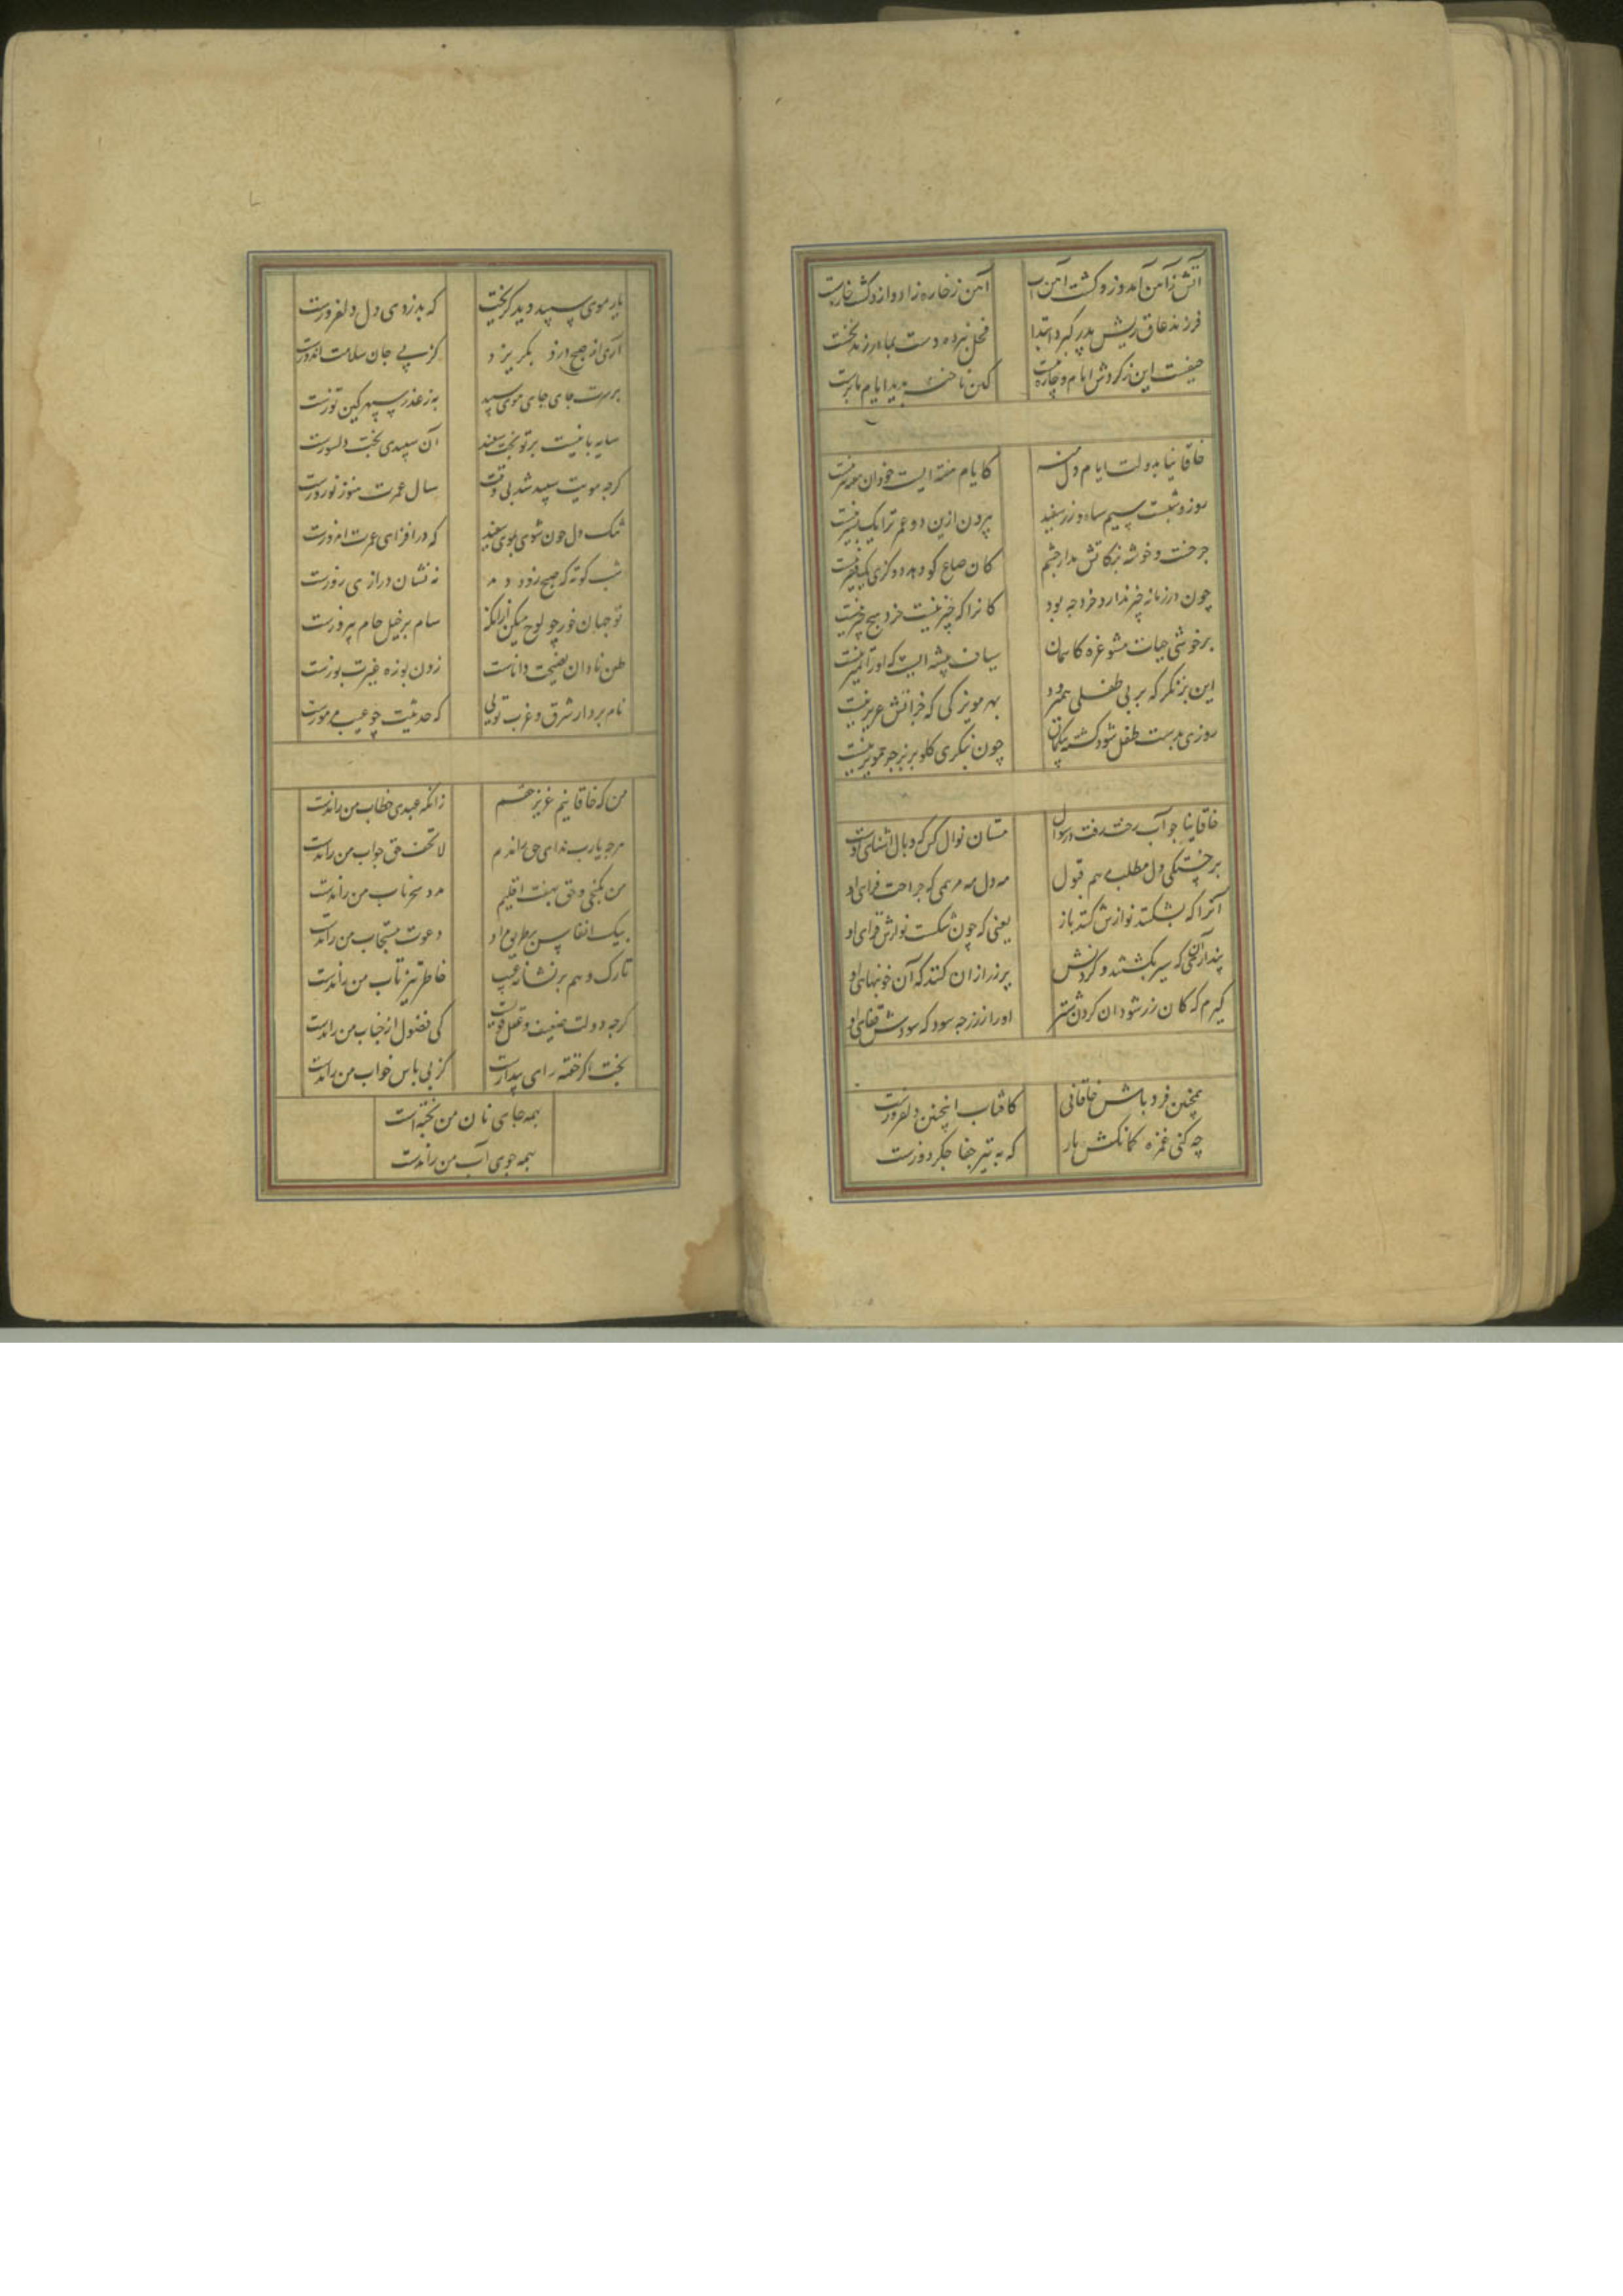 آتش ز آهن آمد و زو گشت آهن آب
آهن ز خاره زاد و ازو گشت خاره پست
فرزند عاق ریش پدر گیرد ابتدا
فحل نبرده دست بمادر زند نخست
حیفست این ز کردش ایام و چاره نیست
کین ناخنه بدیده ایام ما برست
خاقانیا بدولت ایام دل منه
کایام هفته ایست خود آن هفته نیز نیست
روز و شبست سیم سیاه و زر سفید
بیرون ازین دو عمر ترا یک پشیز نیست
چرخست و خوشه بزکاتش مدار چشم
کان صاع کو دهد دو کری یک قفیز نیست
چون در زمانه چیز ندارد خرد چه سود
کانرا که چیز نیست خرد هیچ چیز نیست
بر خوشی حیات مشو غره کاسمان
سیاف پیشه ایست که او را تمیز نیست
این بز نکر که بر پی طفلی همی رود
بهر مویزکی که جز آنش عزیز نیست
روزی بدست طفل شود کشته بیگمان
چون بنگری گلو بر بز جو مویز نیست
خاقانیا چو آب رخت رفت در سوال
مستان نوال کس که وبال آشنای اوست
بر خستگی دل مطلب هم قبول
مه دل مه مرهمی که جراحت فزای او
آنرا که بشکنند نوازش کنند باز
یعنی که چون شکست نوازش قرای او
پندار آن کسی که سیر بکشتند و گردنش
پر زر از آن کنند که آن خونبهای او
گیرم که کان زر شود آن کردن شتر
او را ز زر چه سود که سودش قفای او
همچنین فرد باش خاقانی
کافتاب اینچنین دلفروزست
چه کنی غمزه کمانکش یار
که به تیر جفا جگردوزست
یار موی سپید دید گریخت
که بدزدی دل دلفروزست
آری از صبح دزد بگریزد
کز پی جان سلامت اندوزست
بر سرت جای جای موی سپید
به ز عذر سپهر کین توزست
سایه بانیست بر تو بخت سفید
آن سپیدی بخت دلسوزست
گرچه مویت سپید شد بی وقت
سال عمرت هنوز نوروزست
تنگ دل چون شوی بموی سفید
که درافزای عمرت امروزست
شب کوته که صبح زود دمد
نه نشان درازی روزست
تو جهان خور چو نوح میکن زانکه
سام بر خیل حام پیروزست
طعن نادان نصیحت داناست
زدن یوزه عبرت یوزست
نام بردار شرق و غرب تویی
که حدیثت چو غیب مرموزست
من که خاقانیم عزیز حقم
زانکه عبدی خطاب من راندست
هرچه یارب ندای حق راندم
لا تخف حق جواب من راندست
من بکنجی و حق بهفت اقلیم
مدد سحر ناب من راندست
پیک انفاس بر طریق مراد
دعوت مستجاب من راندست
ناوک وهم بر نشانه غیب
خاطر تیزتاب من راندست
گرچه دولت ضعیف و عقل قویست
کی فضول از جناب من راندست
بخت اگر خفته رای بیدارست
کز پی پاس خواب من راندست
همه جای نان من پختست
همه جوی آب من راندست